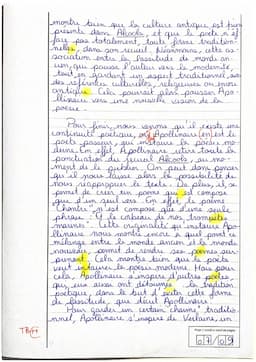 montre bien que la culture antique est bien
présente dans Alcools, et que le poète n'ef
face pas totalement, toute forme tradition
nelle, dans son recueil. Néanmoins, cette as
sociation entre la lassitude de monde an
cien, qui pousse l'auteur vers la modernité,
tout en gardant un aspect traditionnel, avec
des références culturelles, religieuses ou même
antique. Cela pourrait alors pousser Apo-
llinaire vers une nouvelle vision de la
poésie.
Pour finir, nous voyons qu'il existe une
continuité poétique, où Apollinaire est le
poète passeur, qui instaure la poésie mo-
derne. En effet, Apollinaire retire toute la
ponctuation du recueil Alcools, au mo-
ment de la publication. On peut donc penser
qu'il nous laisse alors la possibilité de
nous réapproprier le texte. De plus, il se
permet de créer un poème qui est composé
que d'un seul vers. En effet, le poème
"Chantre" n'est composé que d'une seule
phrase: "Et l'unique cordeau des trompettes
marines". Cette originalité qu'instaure Apo-
llinaire nous montre encore à quel point ce
mélange entre le monde ancien et le monde
nouveau, permet de rendre ses poèmes sur-
prenant. Cela montre bien que le poète
veut instaurer la poésie moderne. Pour cela,
Apollinaire s'inspire d'autres poètes,
qui eux aussi ont détourné la tradition
poétique, dans le but d'éviter cette forme
de lassitude, que décrit Apollinaire.
Pour garder un certain charme tradition-
nel, Apollinaire s'inspire de Verlaine, un
07/09